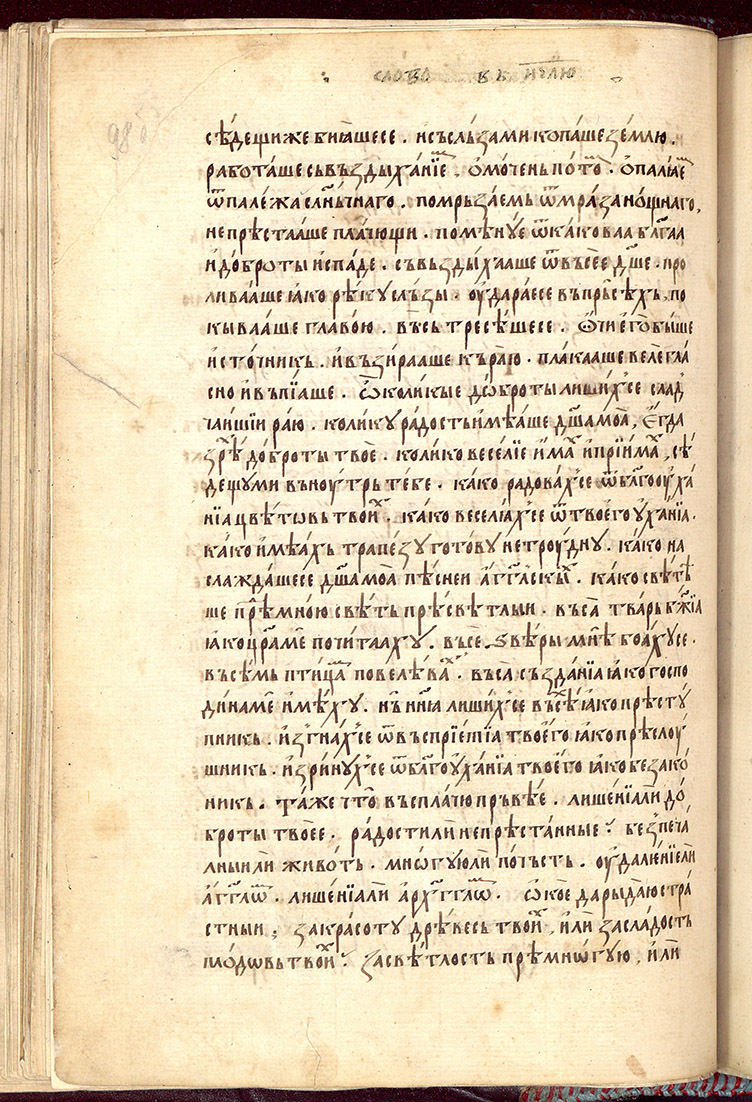 слово въ н҃ꙗлю
сѣ́дещи же бїꙗ́шесе . и съ сльза́ми копа́ше зе́млю .
рабо́тааше съ въздыха́нїѥⷨ . ѡ҆мо́чень по́тоⷨ . ѡ҆палꙗ́еⷨ
ѿ пале́жа слн҃ьчнаго . помрьза́емь ѿ мра́за но́щнаго ,
не прѣста́аше пла́чющи . помѣ́нꙋе ѿ ка́коваа бл҃гаа
и҆ до́броты и҆спа́де . съвьзды́хааше ѿ въсе́е дш҃е . про
лива́аше ꙗ҆́ко рѣ́кꙋ сль́зы . ѹ҆дара́есе въ прь́сѣхь , по
кыва́аше главо́ю . вь́сь тресѣ́шесе . ѻ҆́чи е҆го̀ бы́ше
и҆сто́чникь . и҆ възи́рааше къ ра́ю . пла́кааше велегла́
сно и҆ въпїа́ше . ѽ коли́кые до́броты лиши́хⷭсе слад
ча́ишїи ра́ю . коли́кꙋ ра́дость и҆мѣ́аше дш҃а моа̀ , е҆гда̀
зрѣ́ѣ до́броты твоѐ . коли́ко весе́лїе и҆́маⷯ и҆ прїи́маⷯ , сѣ́
дещꙋ ми въноу́трь те́бе . ка́ко ра́довахⷭсе ѿ бл҃гоѹ҆ха́
нїа цвѣ́товь твои́ⷯ . ка́ко весели́ахⷭсе ѿ твоего̀ ѹ҆ха́нїа .
ка́ко и҆мѣ́ахь трапе́зꙋ гото́вꙋ нетрꙋ́днꙋ . ка́ко на
слажда́шесе дш҃а моа̀ пѣ́снеи а҆́гг҃лскыⷯ . ка́ко свѣ́тѣ
ше прѣⷣ мно́ю свѣ́ть прѣсвѣ́тлыи . въса̀ тва́рь бж҃їа
ꙗ҆́ко цр҃а ме почита́ахꙋ . въсѐ ѕвѣ́ры мнѣ̀ боа́хꙋсе .
въсѣ́мь пти́цаⷨ повелѣ́ваⷯ . въса̀ създа́нїа ꙗ҆́ко госпо
ди́на мѐ и҆мѣ́хꙋ . нь нн҃ꙗ лиши́хⷭсе въсе́ѣ ꙗ҆́ко прѣстꙋ́
пникь . и҆згна́хⷭсе ѿ въсприе́тїа твоего̀ ꙗ҆́ко прѣслоу́
шникь . и҆зри́нꙋхⷭсе ѿ бл҃гоѹ҆ха́нїа твоего̀ ꙗ҆́ко безако́
никь . та́же что̀ въспла́чю пръвѣ́е . лише́нїа ли до́
броты твое́е . ра́дости ли непрѣста́нные . безпеча́
лныи ли живо́ть . мно́гꙋю ли по́чьсть . ѹ҆дале́нїе ли
а҆́гг҃лѡⷨ . лише́нїа ли а҆рха́гг҃лѡⷨ . ѽ ко́е да рыда́ю стра́
стныи ; за красотꙋ̀ дрѣ́весь твои́ⷯ , и҆ли за сла́дость
пло́довь твои́ⷯ . за свѣ́тлость прѣмно́гꙋю , и҆ли